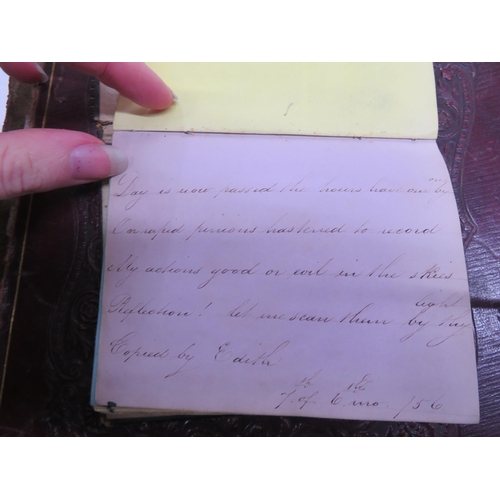 Day is now passed the hours had one by on
On rapid pinions hastened to record
My actions good or evil in the skies
light
Reflection! let me scan them by thy
Copied by Edith
7th of 6th mo /56